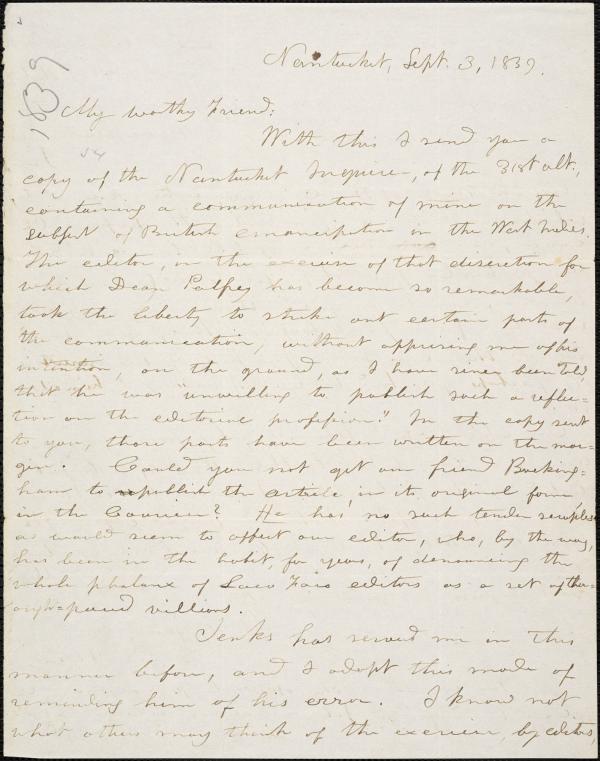 Nantucket, Sept. 3, 1839.
1839
My worthy Friend:
With this I send you a
copy of the Nantucket Inquirer, of the 31st ult.,
containing a communication of mine on the
subject of British emancipation in the West Indies.
The editor, in the exercise of that discretion for
which Dean Palfrey has become so remarkable,
took the liberty to strike out certain parts of
the communication, without apprising me of his
intention, on the ground, as I have since been told,
that he was "unwilling to publish such a reflec=
tion on the editorial profession." In the copy sent
to you, those parts have been written on the mar=
gin. Could you not get our friend Bucking=
ham to republish the article, in its original form,
in the Courier? He has no such tender scruples
as would seem to affect our editor, who, by the way,
has been in the habit, for years, of denouncing the
whole phalanx of Loco Foco editors as a set of tho=
rough=paced villions.
Jenks has served me in this
manner before, and I adopt this mode of
reminding him of his error. I know not
what others may think of the exercise, by editors,